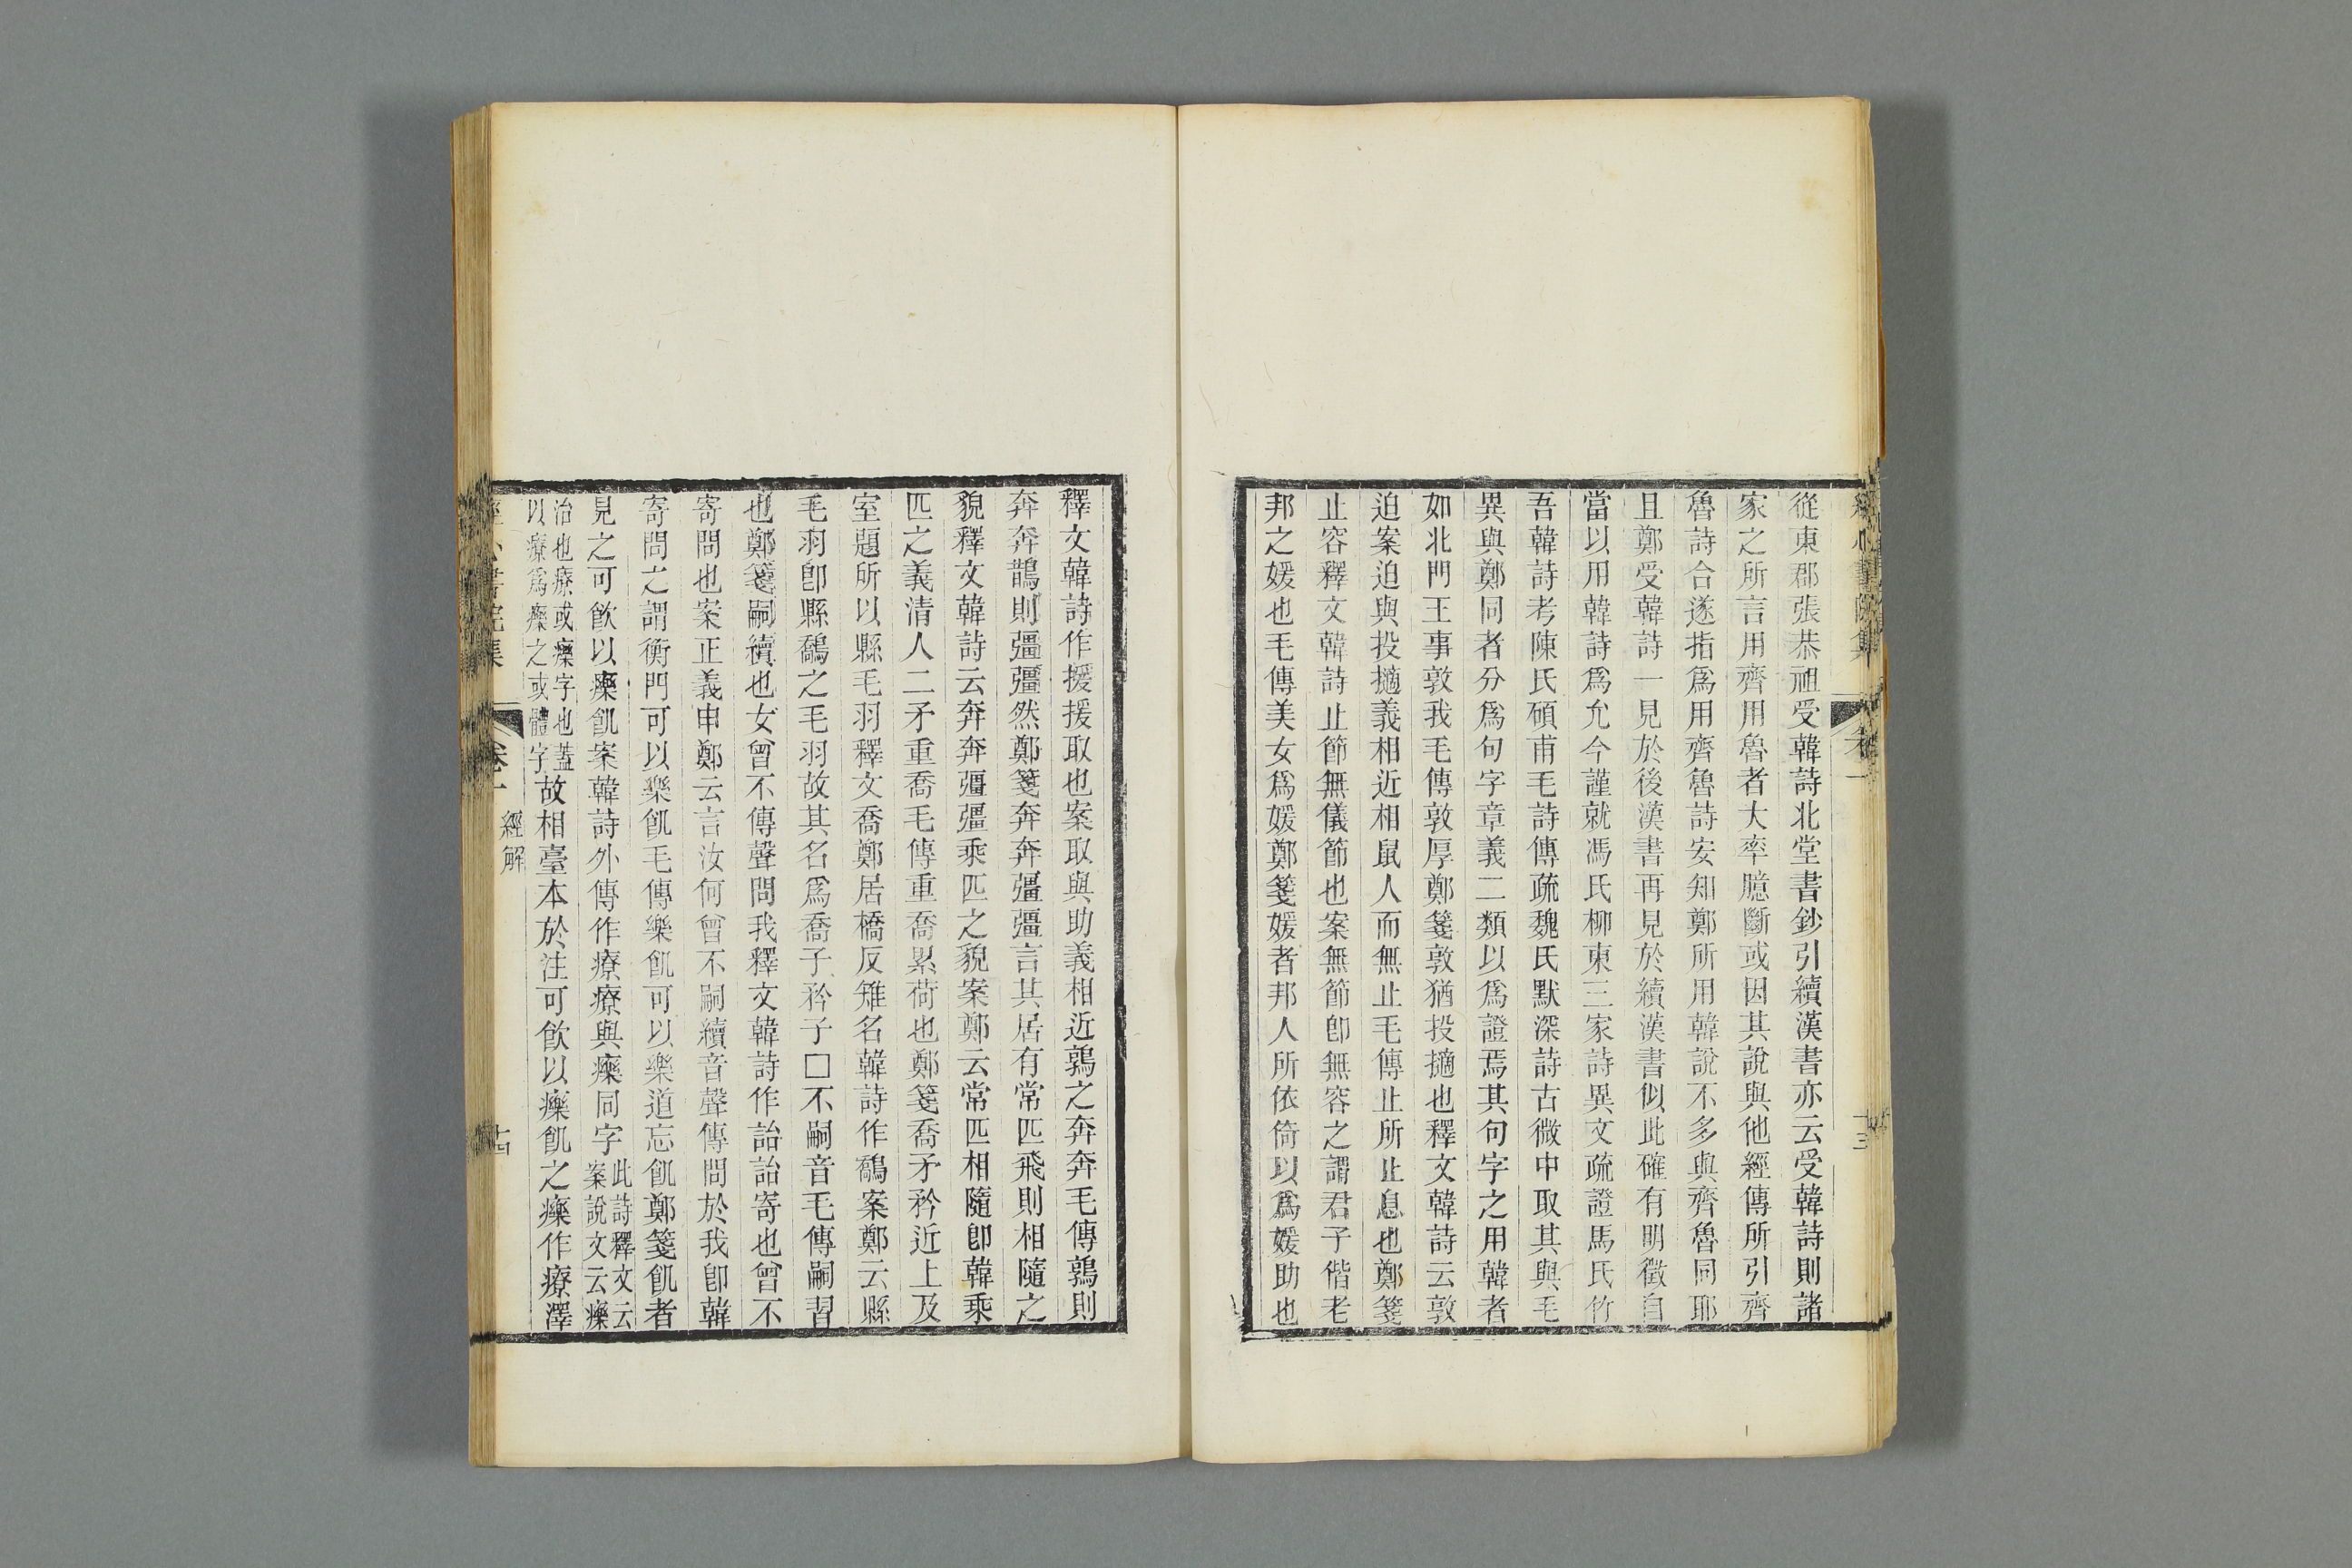 從東郡張恭祖受韓詩北堂書鈔引續漢書亦云受韓詩則諸
家之所言用齊用魯者大率臆斷或因其說與他經傳所引齊
魯詩合遂指爲用齊魯詩安知鄭所用韓說不多與齊魯同耶
且鄭受韓詩一見於後漢書再見於續漢書似此確有明徵自
當以用韓詩爲允今謹就馮氏柳東三家詩異文疏證馬氏竹
吾韓詩考陳氏碩甫毛詩傳疏魏氏默深詩古微中取其與毛
異與鄭同者分爲句字章義二類以爲證焉其句字之用韓者
如北門王事敦我毛傳敦厚鄭箋敦猶投擿也釋文韓詩云敦
迫案迫與投擿義相近相鼠人而無止毛傳止所止息也鄭箋
止容釋文韓詩止節無儀節也案無節卽無容之謂君子偕老
邦之媛也毛傳美女爲媛鄭箋媛者邦人所依倚以爲媛助也
釋文韓詩作援援取也案取與助義相近鶉之奔奔毛傳鶉則
奔奔鵲則彊彊然鄭箋奔奔彊彊言其居有常匹飛則相隨之
貌釋文韓詩云奔奔彊彊乘匹之貌案鄭云常匹相隨卽韓乘
匹之義清人二矛重喬毛傳重喬累荷也鄭箋喬矛矜近上及
室題所以縣毛羽釋文喬鄭居橋反雉名韓詩作鷮案鄭云縣
毛羽卽縣鷮之毛羽故其名爲喬子矜子□不嗣音毛傳嗣習
也鄭箋嗣續也女曾不傳聲問我釋文韓詩作詒詒寄也曾不
寄問也案正義申鄭云言汝何曾不嗣續音聲傳問於我卽韓
寄問之謂衡門可以樂飢毛傳樂飢可以樂道忘飢鄭箋飢者
見之可飲以𤻲飢案韓詩外傳作療療與𤻲同字此詩釋文云
案說文云𤻲
治也療或𤻲字也蓋
以療爲𤻲之或體字故相臺本於注可飲以𤻲飢之𤻲作療澤
卷一
經解
十四